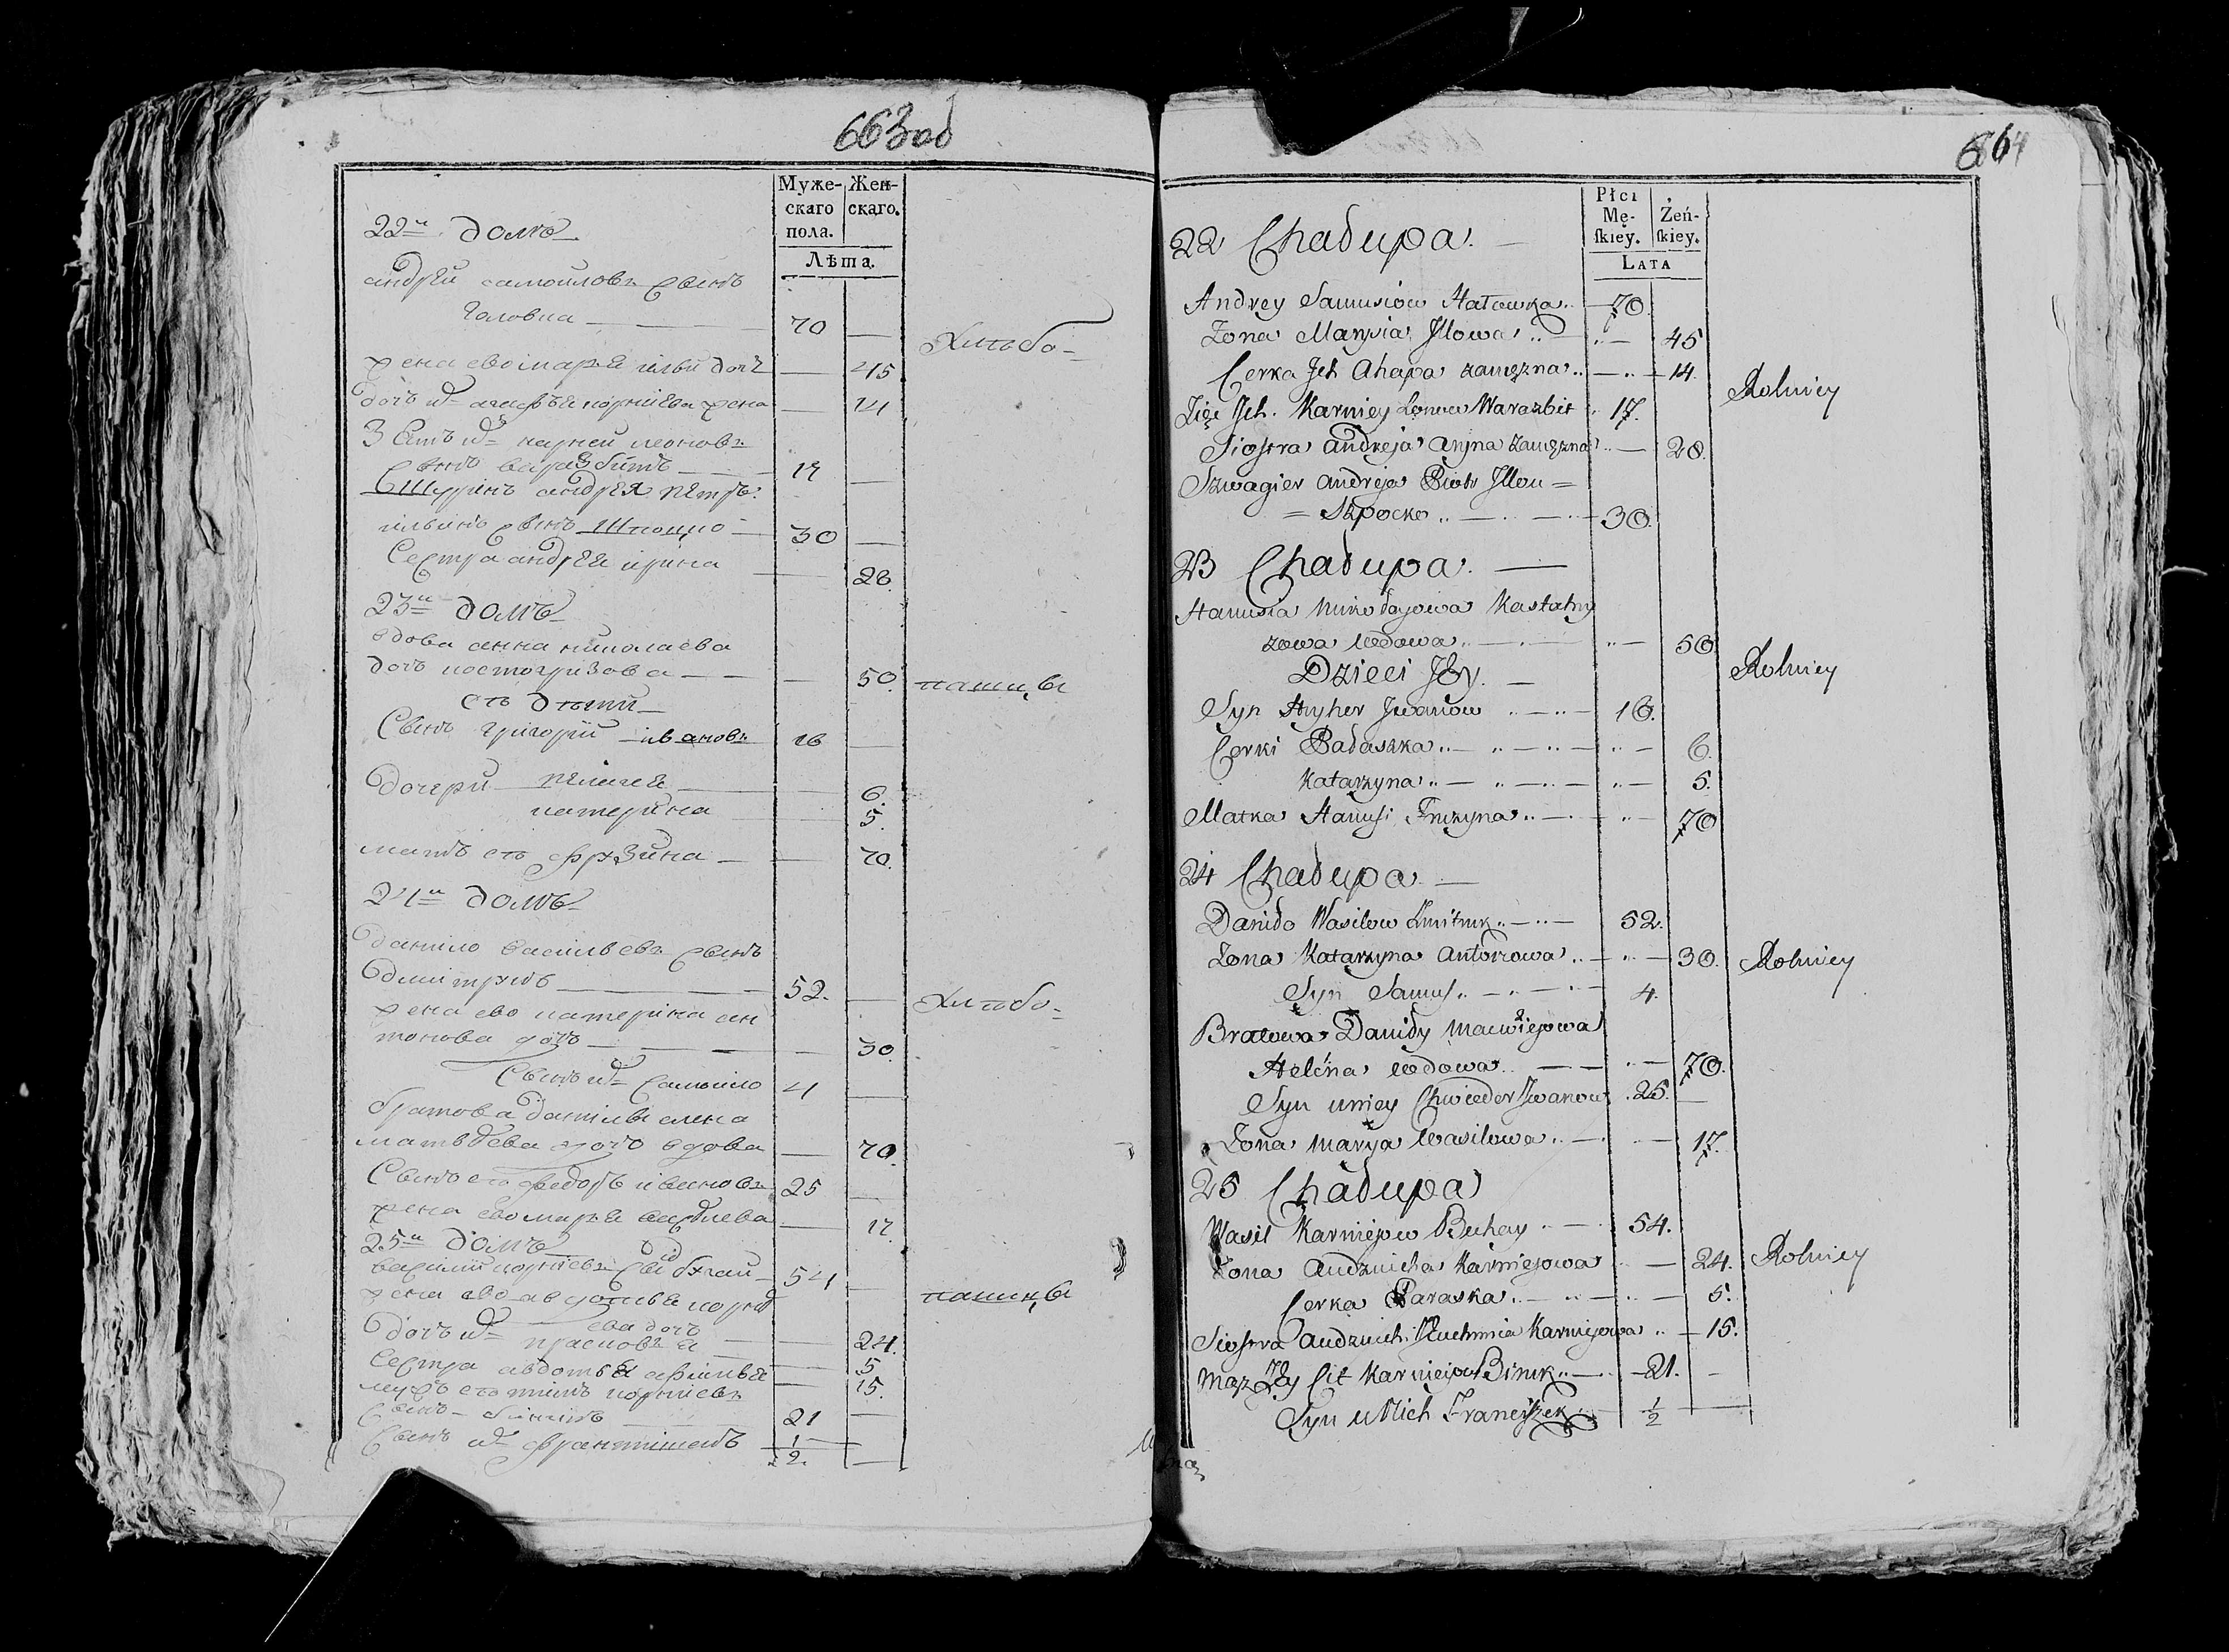 663об
Муже-
скаго
пола.
Жен-
скаго.
Лѣта.
22й домъ
андрей самойловъ сынъ
Головка 70
жена ево марья ильи дочь 45
дочь их агафья корнiева жена 14
Зять их карней леоновъ
сынъ варазбитъ 17
Шуринъ андрея петръ
ильинъ сынъ шпоцко 30
Сестра андрея ирина 28
23й домъ
вдова анна николаева
дочь костогризова 50
ее дѣти
Сынъ григорiй ивановъ 16
дочери пелагея 6
катерина 5
мать ее фрузина 70
24й домъ
данило васильевъ сынъ
дмитрукъ 52
жена ево катерина ан
тонова дочь 30
Сынъ их самойло 4
братова данилы елена
матвѣева дочь вдова 70
Сынъ ее федоръ ивановъ 25
жена ево марья василева 17
25й домъ
василий корнiевъ сынъ бугай 54
жена ево авдотья корнѣ
ева дочь 24
дочь их прасковья 5
Сестра авдотьи афимья 15
мужъ ее титъ корнiевъ
сынъ биникъ 21
Сынъ их францишекъ 1/2
Хлѣбо-
пашцы
Хлѣбо-
пашцы
664
Płci
Mę-
skiey.
Żeń-
skiey.
LATA
22 Chałupa.
Andrey Samusiów Hałowka 70
Żona Marysia Jllowa 45
Corka Jch Ahapa zamężna 14
Zięc Jch. Karniey Lonow Warazbit 17
Siostra Andreja Aryna zamężna 28
Szwagier Andreja Piotr Jllou =
= Szpocko 30
Rolnicy
23 Chałupa.
Hanusia Mikołayowa Kastahry
zowa wdowa 50
Dzieci Jey.
Syn Hryher Jwanow 16
Corki Pałaszka 6
Katarzyna 5
Matka Hanusi Fruzyna 70
Rolnicy
24 Chałupa
Daniło Wasilow Dmitruk 52
Żona Katarzyna Antonowa 30
Syn Samuś 4
Bratowa Daniły Maciejowa
Helena wdowa 70
Syn uniey Chwieder Jwanow 25
Żona Marya Wasilowa 17
Rolnicy
25 Chałupa
Wasil Karniejow Buhay 54
Żona Audziucha Karniejowa 24
Corka Paraska 5
Siostra Audziuch. Juchimia Karniejowa 15
Mąż Jey Cit Karniejow Binik 21
Syn u Nich Franciszek 1/2
Rolnicy